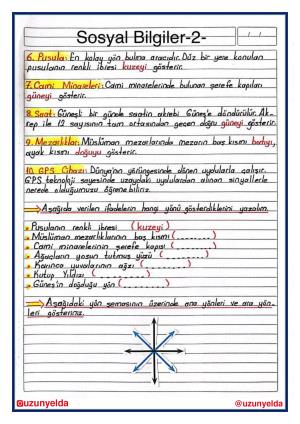 Sosyal Bilgiler -2-
6. Pusula: En kolay yön bulma aracıdır. Düz bir yere konulan
pusulanın renkli ibresi kuzeyi gösterir.
7. Cami Minareleri: Cami minarelerinde bulunan şerefe kapıları
güneyi gösterir.
8. Saat: Güneşli bir günde saatin akrebi Güneş'e döndürülür. Ak-
rep ile 12 sayısının tam ortasından geçen doğru güneyi gösterir.
9. Mezarlıklar: Müslüman mezarlarında mezarın baş kısmı batıyı,
ayak kısmı doğuyu gösterir.
10. GPS Cihazı: Dünya'nın yörüngesinde dönen uydularla çalışır.
GPS teknoloji sayesinde uzaydaki uydulardan alınan sinyallerle
nerede olduğumuzu öğrenebiliriz.
Aşağıda verilen ifadelerin hangi yönü gösterdiklerini yazalım.
Pusulanın renkli ibresi (kuzeyi)
Müslüman mezarlıklarının baş kısmı (........)
Cami minarelerinin şerefe kapısı (........)
Ağaçların yosun tutmuş yüzü (........)
Karınca yuvalarının ağzı (........)
Kutup Yıldızı (........)
Güneş'in doğduğu yön (........)
Aşağıdaki yön şemasının üzerinde ana yönleri ve ara yön-
leri gösteriniz.
@uzunyelda @uzunyelda